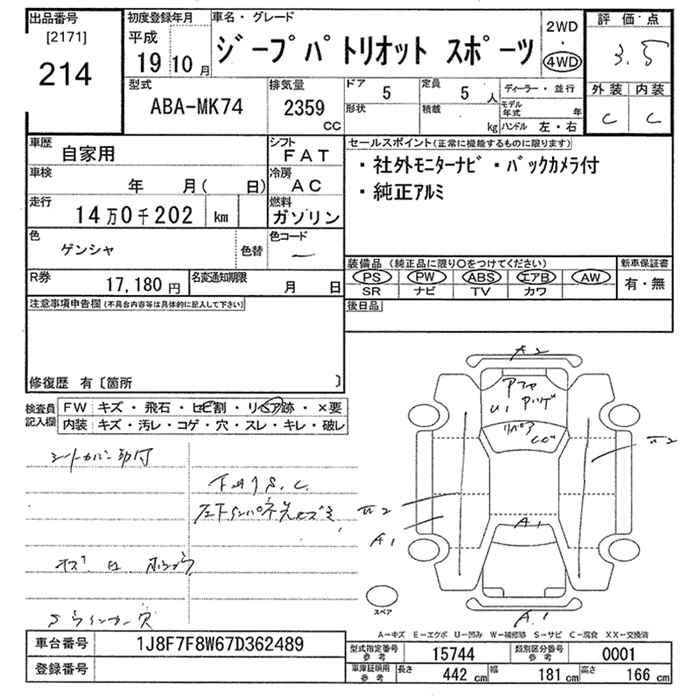 出品番号
[2171]
214
初度登録年月
平成
19 10 月
車名・グレード
ジープパトリオット スポーツ
2WD
・
4WD
評価点
3.5
外装 内装
C C
型式
ABA-MK74
排気量
2359
CC
ドア
5
定員
5 人
形状
積載
kg
ディーラー・並行
モデル年式 年
ハンドル 左・右
車歴
自家用
シフト
FAT
車検
年 月( 日)
冷房
AC
走行
14万0千202 km
燃料
ガソリン
色
ゲンシャ
色替
色コード
R券
17,180 円
名変通知期限
月 日
セールスポイント(正常に機能するものに限ります)
・社外モニターナビ・バックカメラ付
・純正アルミ
装備品 (純正品に限り○をつけてください)
PS PW ABS エアB AW
SR ナビ TV カワ
新車保証書
有・無
後日品
注意事項申告欄(不具合内容等は具体的に記入して下さい)
修復歴 有〔箇所 〕
検査員
記入欄
FW キズ・飛石・ヒビ割・リペア跡・×要
内装 キズ・汚レ・コゲ・穴・スレ・キレ・破レ
A2
U1
リペア
A1
A1
A1
スペア
A-キズ E-エクボ U-凹み W-補修跡 S-サビ C-腐食 XX-交換済
車台番号
1J8F7F8W67D362489
登録番号
型式指定番号
参考
15744
類別区分番号
参考
0001
車庫証明用
参考
長さ 442 cm 幅 181 cm 高さ 166 cm